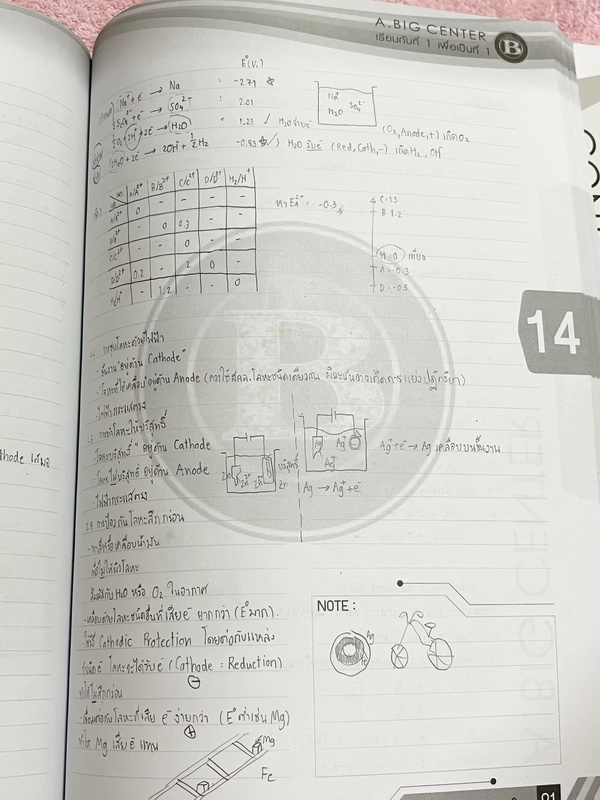 A.BIG CENTER
เรียนกับที่ 1 เพื่อเป็นที่ 1
B
E°(V.)
Na⁺ + e⁻ → Na : -2.71
½S₂O₈²⁻ + e⁻ → SO₄²⁻ : 2.01
½O₂ + 2H⁺ + 2e⁻ → H₂O : 1.23 ✓ H₂O จ่ายe⁻ (Ox, Anode, +) เกิดO₂
2H₂O + 2e⁻ → 2OH⁻ + ½H₂ -0.83 H₂O รับe⁻ (Red, Cath, -) เกิดH₂, OH⁻
Na⁺ SO₄²⁻
H₂O
A/A²⁺ B/B²⁺ C/C²⁺ D/D²⁺ H₂/H⁺
A/A²⁺ 0 - - - -
B/B²⁺ - 0 0.3 - -
C/C²⁺ - - 0 - -
D/D²⁺ 0.2 - 2 0 -
H₂/H⁺ - 1.2 - - 0
หา E°A²⁺ = -0.3
C = 1.5
B = 1.2
H = 0 เทียบ
A = -0.3
D = -0.5
14
การชุบโลหะด้วยไฟฟ้า
- ชิ้นงาน "อยู่ด้าน Cathode"
- โลหะที่ใช้เคลือบ อยู่ด้าน Anode (ควรใช้สลล.โลหะชนิดเดียวกัน มิฉะนั้นอาจเกิดการแข่งปฏิกิริยา)
- ไฟฟ้ากระแสตรง
การทำโลหะให้บริสุทธิ์
- โลหะบริสุทธิ์ อยู่ด้าน Cathode
- โลหะไม่บริสุทธิ์ อยู่ด้าน Anode
- ไฟฟ้ากระแสตรง
Zn Zn²⁺ Zn²⁺ บริสุทธิ์
Zn
Ag Ag⁺
Ag⁺
Ag⁺ + e⁻ → Ag เคลือบบนชิ้นงาน
Ag → Ag⁺ + e⁻
การป้องกันโลหะสึกกร่อน
- ทาสีหรือเคลือบน้ำมัน
เพื่อไม่ให้ผิวโลหะ
สัมผัสกับ H₂O หรือ O₂ ในอากาศ
- เคลือบด้วยโลหะชนิดอื่นที่เสียe⁻ ยากกว่า (E°มาก).
- ใช้วิธี Cathodic Protection โดยต่อกับแหล่ง
กำเนิดe⁻ โลหะจะได้รับe⁻ (Cathode = Reduction)
ทำให้ไม่สึกกร่อน
- เชื่อมต่อกับโลหะที่เสีย e⁻ ง่ายกว่า (E°ต่ำเช่น Mg)
ทำให้ Mg เสียe⁻ แทน
Mg
Fe
NOTE :
Ag
Fe
hode เสมอ
91